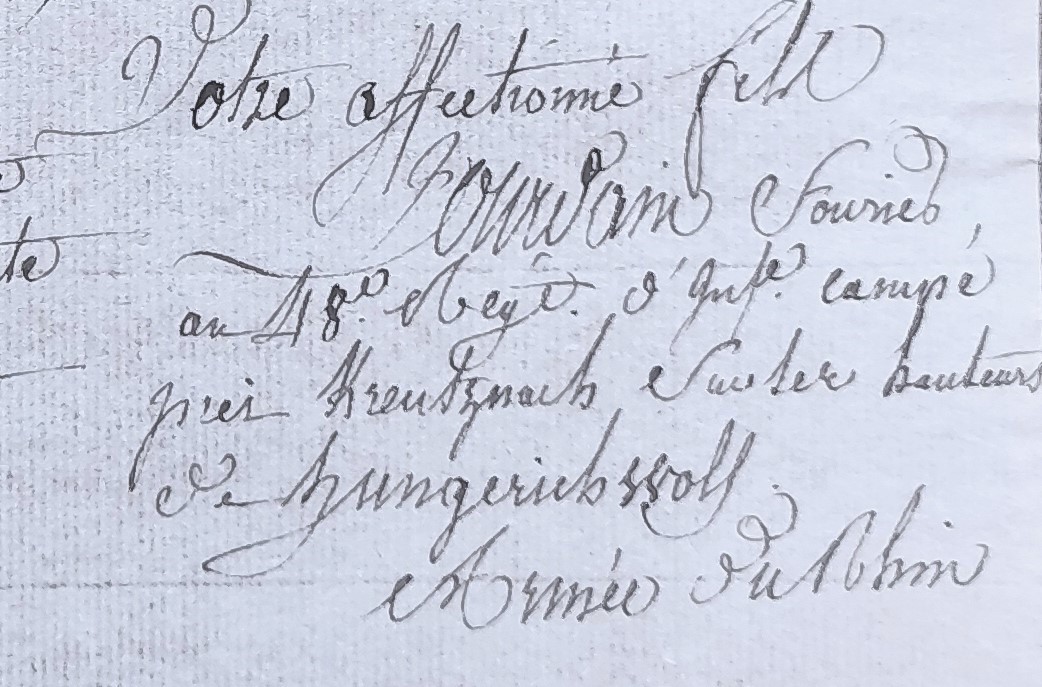 Votre affectionné fils
Jourdain Fourier,
au 48.e Regt. d'Infe. campé
près Kreutznach Sur les hauteurs
te
de hungerichswolf.
Armée du Rhin